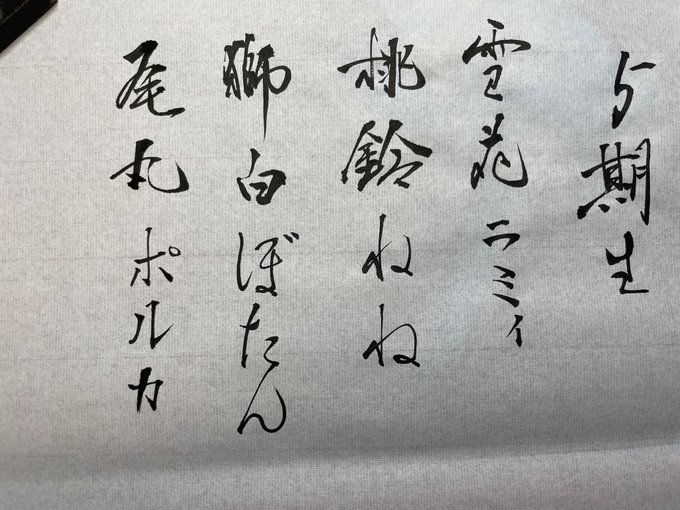 5期生
雪花ニミィ
桃鈴ねね
獅白ぼたん
尾丸ポルカ